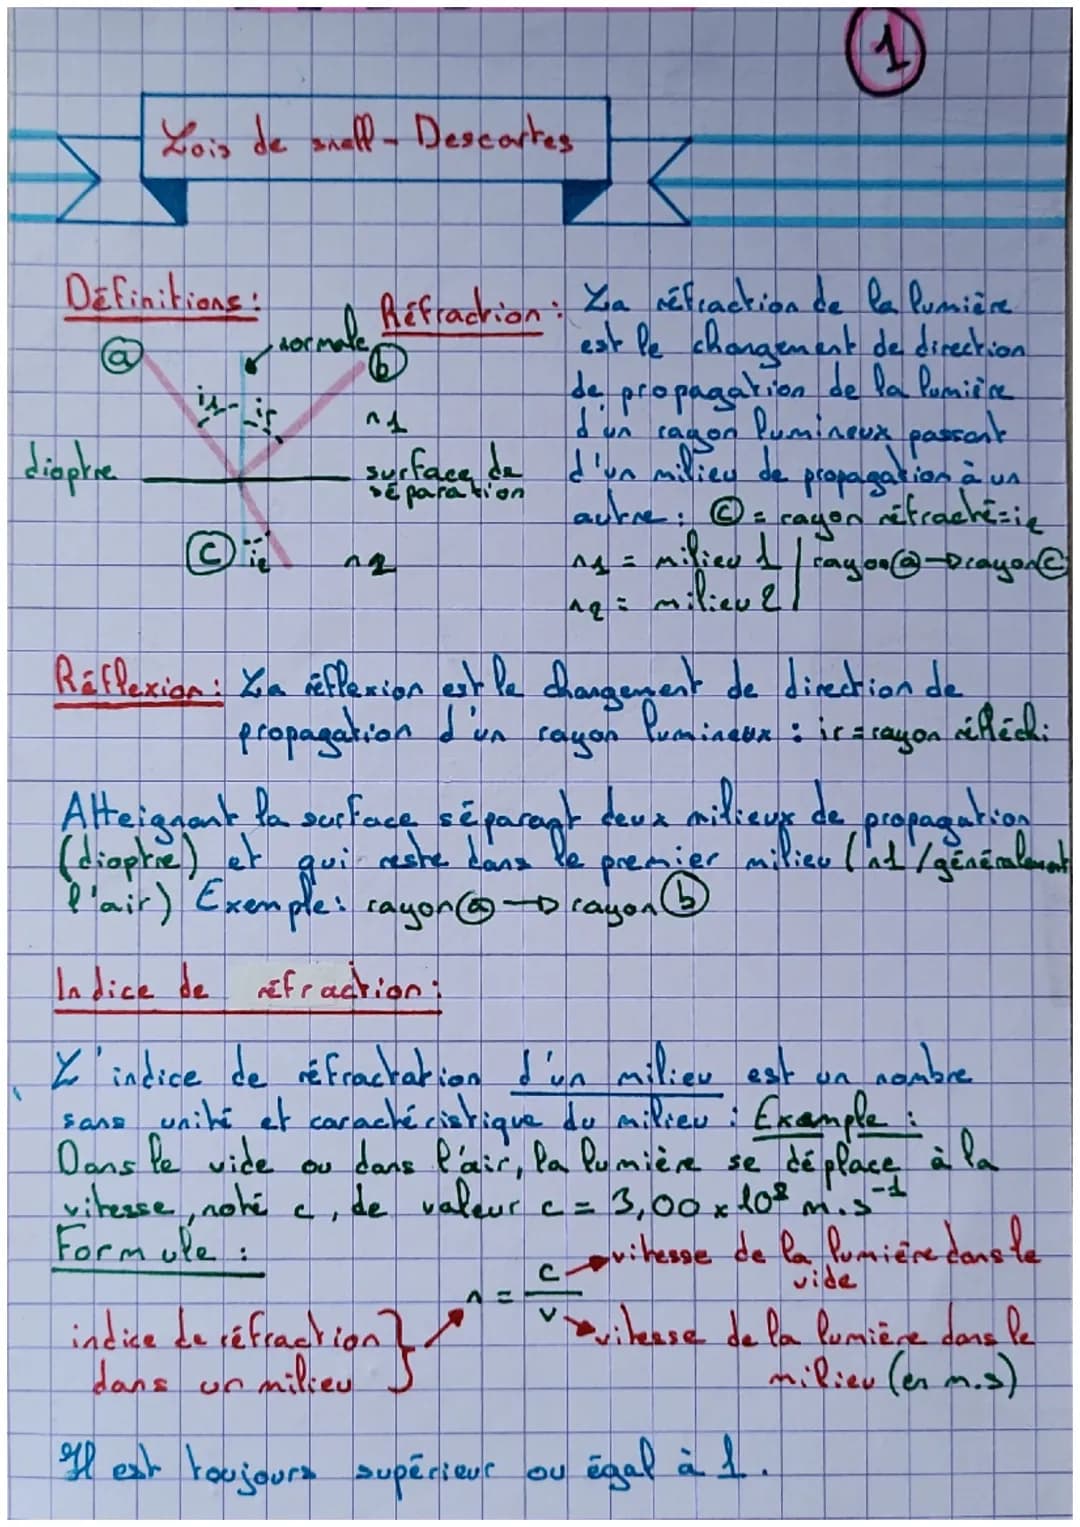 1
Lois de snell - Descartes
Définitions :
normale
a
b
i1
ir
n1
dioptre
surface de
séparation
C
i2
n2
Réfraction : La réfraction de la lumière
est le changement de direction
de propagation de la lumière
d'un rayon lumineux passant
d'un milieu de propagation à un
autre : C = rayon réfracté = i2
n1 = milieu 1 / rayon a → rayon C
n2 = milieu 2 /
Réflexion : La réflexion est le changement de direction de
propagation d'un rayon lumineux : ir = rayon réfléchi
Atteignant la surface séparant deux milieux de propagation
(dioptre) et qui reste dans le premier milieu (n1 / généralement
l'air) Exemple : rayon a → rayon b
Indice de réfraction :
L'indice de réfractation d'un milieu est un nombre
sans unité et caractéristique du milieu : Exemple :
Dans le vide ou dans l'air, la lumière se déplace à la
vitesse, noté c, de valeur c = 3,00 x 10⁸ m.s⁻¹
Formule :
n = c/v
vitesse de la lumière dans le
vide
indice de réfraction
dans un milieu
vitesse de la lumière dans le
milieu (en m.s)
Il est toujours supérieur ou égal à 1.